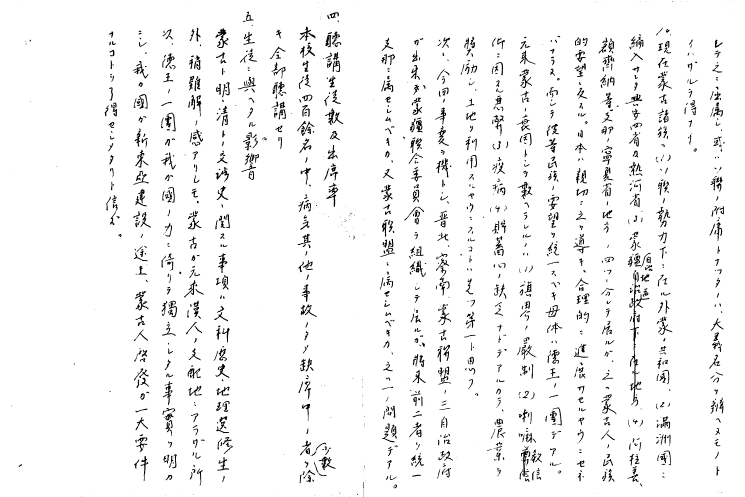 レテ之ニ圧属シ、或ハソ聯ノ附庸トナツタハ、大義名分ヲ辨ヘヌモノト
イハザルヲ得ナイ。
10. 現在蒙古諸族ハ(1)ソ聯ノ勢力下ニ在ル外蒙ノ共和国(2)満洲国ニ
編入サレタ興安四省及熱河省(3)蒙疆自治地区(4)阿拉善、
額済納等支那ノ寧夏省ノ地方ノ四ツニ分レテ居ルガ、之ハ蒙古人ノ民族
的要望ニ反スル。日本ハ親切ニ之ヲ導キ、合理的ニ進展サセルヤウニセネ
バナラヌ。而シテ従等民族ノ要望ヲ統一スベキ母体ハ徳王ノ一団デアル。
元来蒙古ノ衰因トシテ数ヘラレルハ(1)旗界ノ厳劃(2)喇嘛教信
仰ニ因スル悪弊(3)疫病(4)貯蓄心ノ缺乏ナドデアルカラ、農業ヲ
奨励シ、土地ヲ利用スルヤウニスルコトハ先ヅ第一ト思フ。
次ニ、今回ノ事変ヲ機トシ、晋北、察南、蒙古聯盟ノ三自治政府
が出来、蒙疆聯合委員会ヲ組織シテ居ルガ、将来前二者ヲ統一
支那ニ属セシムベキカ、又蒙古聯盟ニ属セシムベキカ、之ハ一ノ問題デアル。
四、聴講生徒数及出席率
本校生徒四百餘名ノ中、病気其ノ他ノ事故ノタメ缺席中ノ者(少数)ヲ除
キ全部聴講セリ
五、生徒ニ與ヘタル影響
蒙古ト明、清トノ交渉史ニ関スル事項ハ文科歴史、地理選修生ノ
外、稍難解ノ感アリシモ、蒙古が元来漢人ノ支配地ニアラザル所
以、徳王ノ一団が我が國ノ力ニ倚リテ獨立シタル事実ヲ明カ
ニシ、我が國が新東亜建設ノ途上、蒙古人啓発が一大要件
ナルコトヲ了得セシメタリト信ズ。